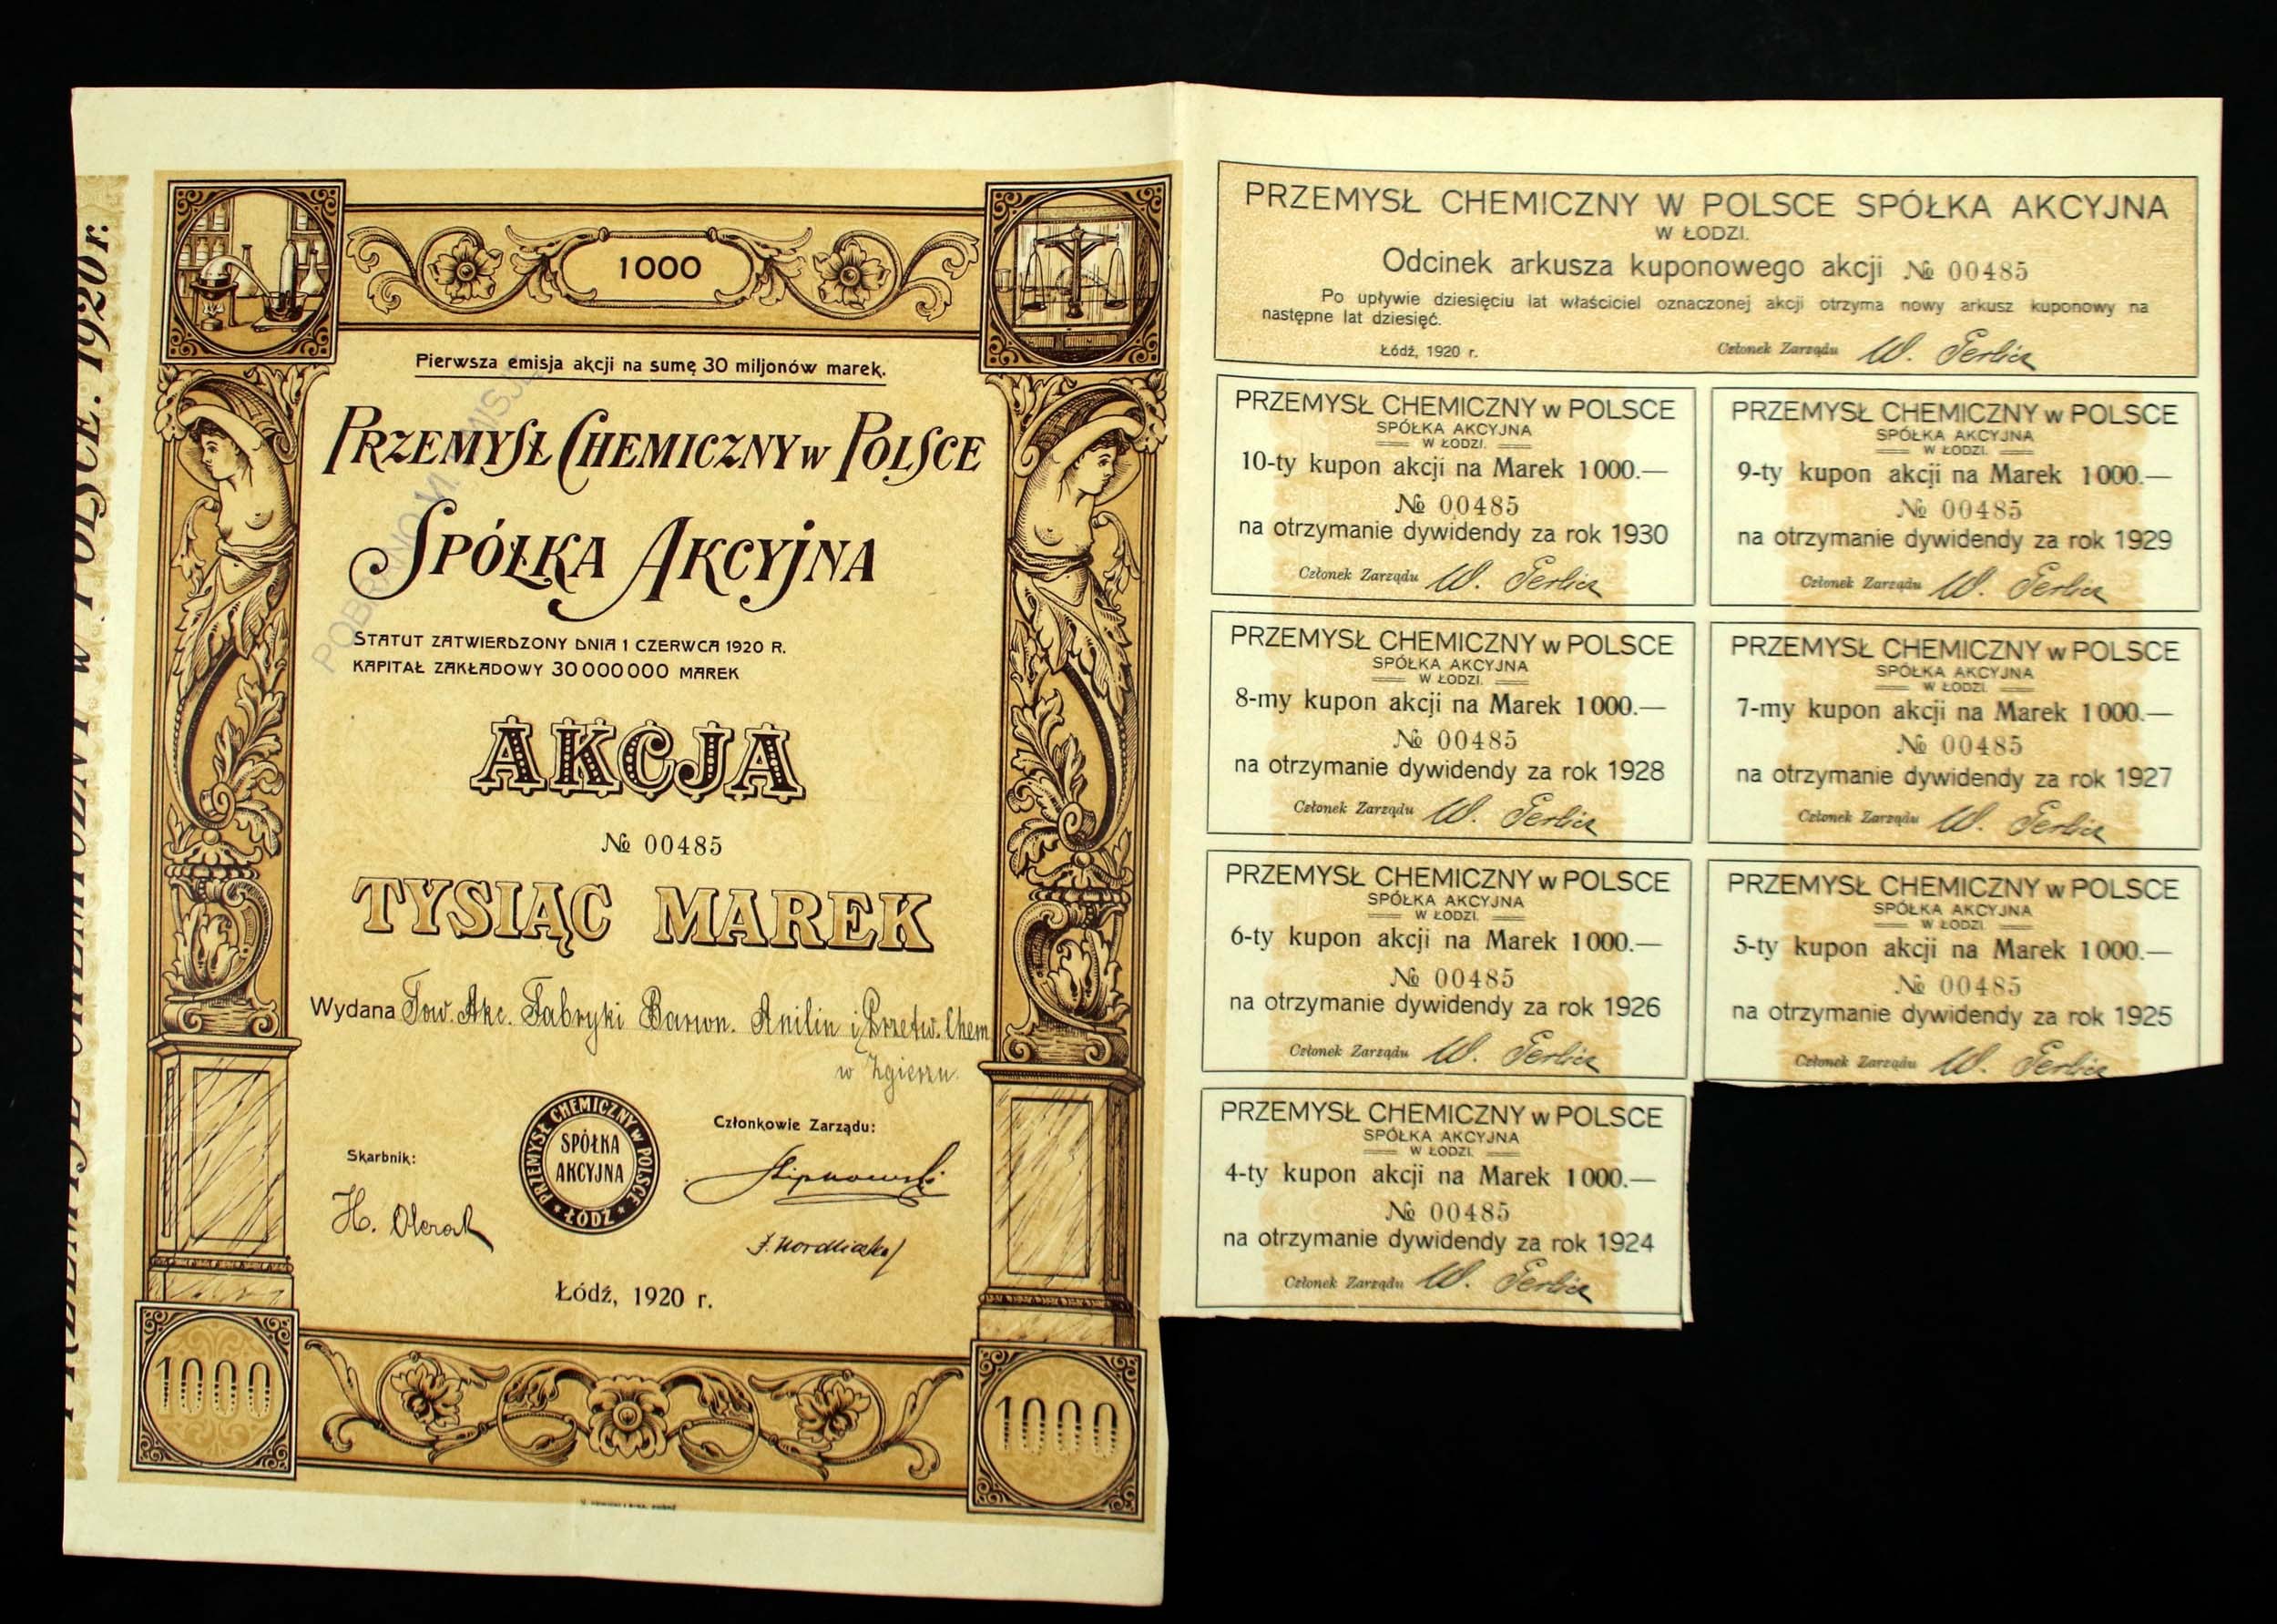 1000
Pierwsza emisja akcji na sumę 30 miljonów marek.
PRZEMYSŁ CHEMICZNY w POLSCE
SPÓŁKA AKCYJNA
STATUT ZATWIERDZONY DNIA 1 CZERWCA 1920 R.
KAPITAŁ ZAKŁADOWY 30 000 000 MAREK
AKCJA
№ 00485
TYSIĄC MAREK
Wydana Tow. Akc. Fabryki Barwn. Anilin i Przetw. Chem
w Zgierzu.
PRZEMYSŁ CHEMICZNY w POLSCE
SPÓŁKA
AKCYJNA
* ŁÓDŹ *
Skarbnik:
Członkowie Zarządu:
Łódź, 1920 r.
1000
1000
POLSCE. 1920 r.
PRZEMYSŁ CHEMICZNY W POLSCE SPÓŁKA AKCYJNA
W ŁODZI.
Odcinek arkusza kuponowego akcji № 00485
Po upływie dziesięciu lat właściciel oznaczonej akcji otrzyma nowy arkusz kuponowy na
następne lat dziesięć.
Łódź, 1920 r. Członek Zarządu
PRZEMYSŁ CHEMICZNY w POLSCE
SPÓŁKA AKCYJNA
W ŁODZI.
10-ty kupon akcji na Marek 1000.—
№ 00485
na otrzymanie dywidendy za rok 1930
Członek Zarządu
PRZEMYSŁ CHEMICZNY w POLSCE
SPÓŁKA AKCYJNA
W ŁODZI.
9-ty kupon akcji na Marek 1000.—
№ 00485
na otrzymanie dywidendy za rok 1929
Członek Zarządu
PRZEMYSŁ CHEMICZNY w POLSCE
SPÓŁKA AKCYJNA
W ŁODZI.
8-my kupon akcji na Marek 1000.—
№ 00485
na otrzymanie dywidendy za rok 1928
Członek Zarządu
PRZEMYSŁ CHEMICZNY w POLSCE
SPÓŁKA AKCYJNA
W ŁODZI.
7-my kupon akcji na Marek 1000.—
№ 00485
na otrzymanie dywidendy za rok 1927
Członek Zarządu
PRZEMYSŁ CHEMICZNY w POLSCE
SPÓŁKA AKCYJNA
W ŁODZI.
6-ty kupon akcji na Marek 1000.—
№ 00485
na otrzymanie dywidendy za rok 1926
Członek Zarządu
PRZEMYSŁ CHEMICZNY w POLSCE
SPÓŁKA AKCYJNA
W ŁODZI.
5-ty kupon akcji na Marek 1000.—
№ 00485
na otrzymanie dywidendy za rok 1925
Członek Zarządu
PRZEMYSŁ CHEMICZNY w POLSCE
SPÓŁKA AKCYJNA
W ŁODZI.
4-ty kupon akcji na Marek 1000.—
№ 00485
na otrzymanie dywidendy za rok 1924
Członek Zarządu